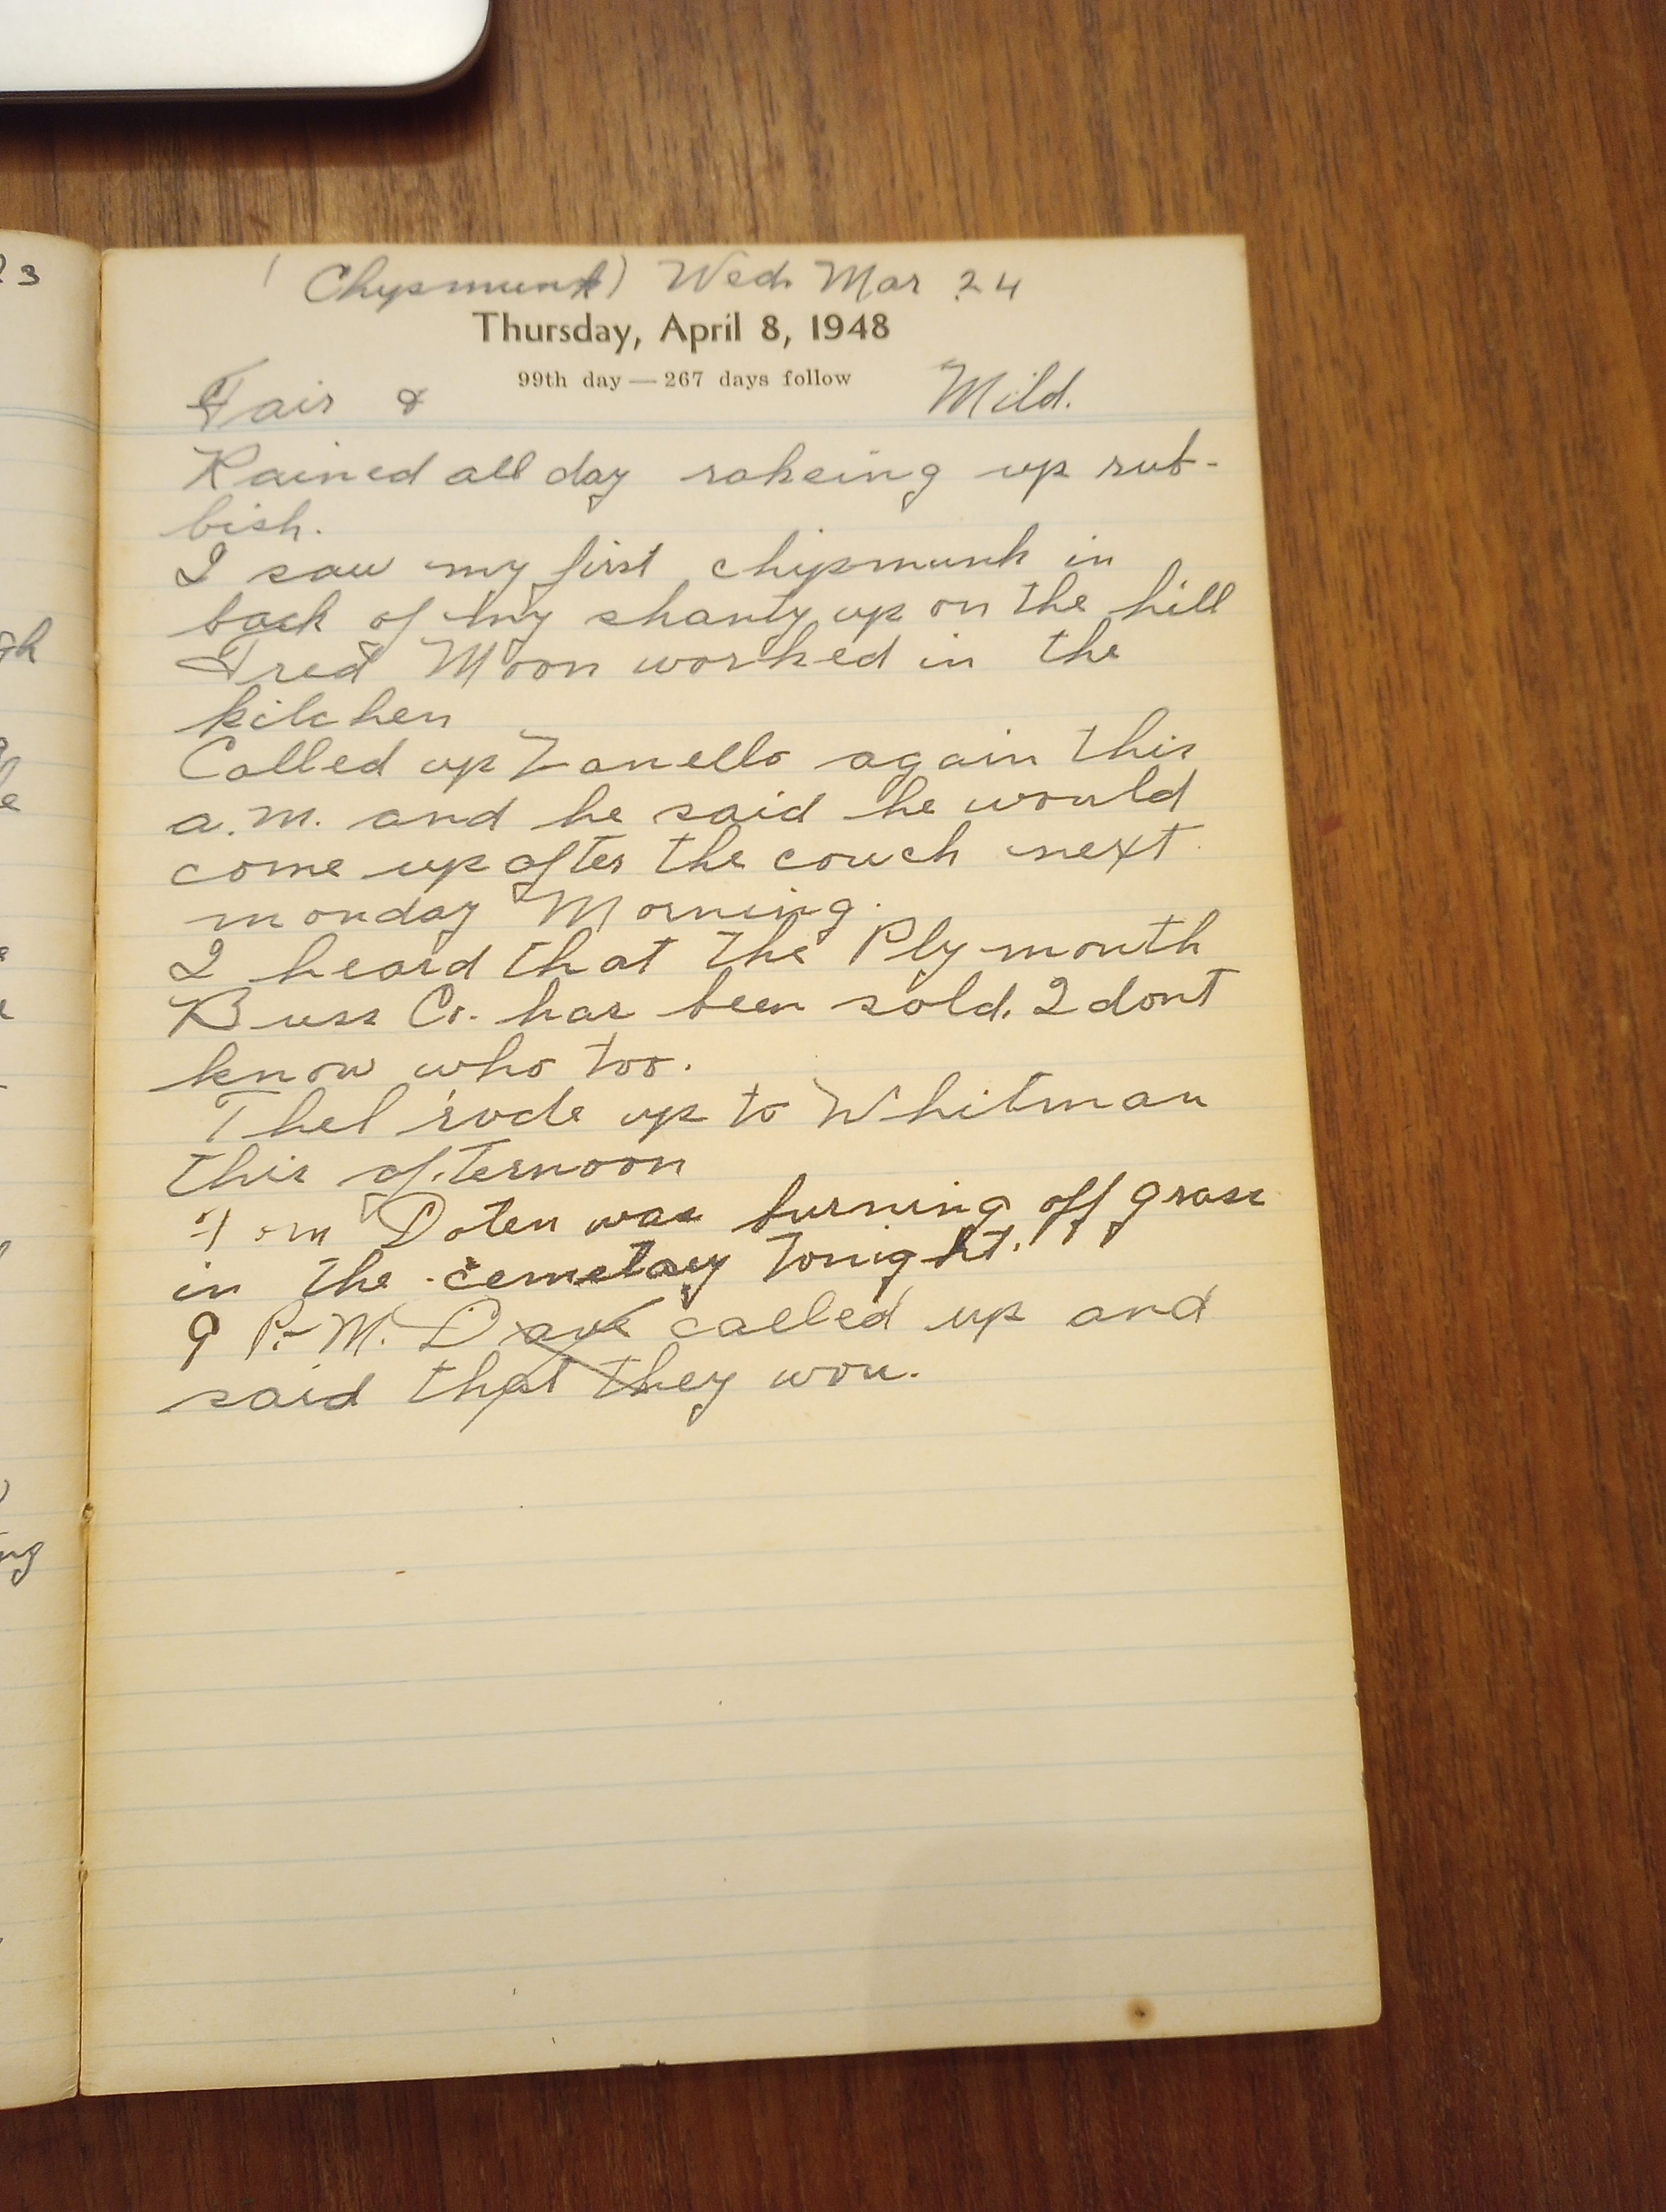 23
(Chypmunk) Wed. Mar 24
Thursday, April 8, 1948
99th day — 267 days follow
Fair & Mild.
Rained all day rakeing up rub-
bish.
I saw my first chipmunk in
back of my shanty up on the hill
Fred Moon worked in the
kitchen
Called up Zanello again this
a.m. and he said he would
come up after the couch next
monday Morning.
I heard that the Plymouth
Buss Co. has been sold. I dont
know who too.
Thel rode up to Whitman
this afternoon
Doten was burning off grass
in the cemetary tonight.
9 P.M. Dave called up and
said that they won.